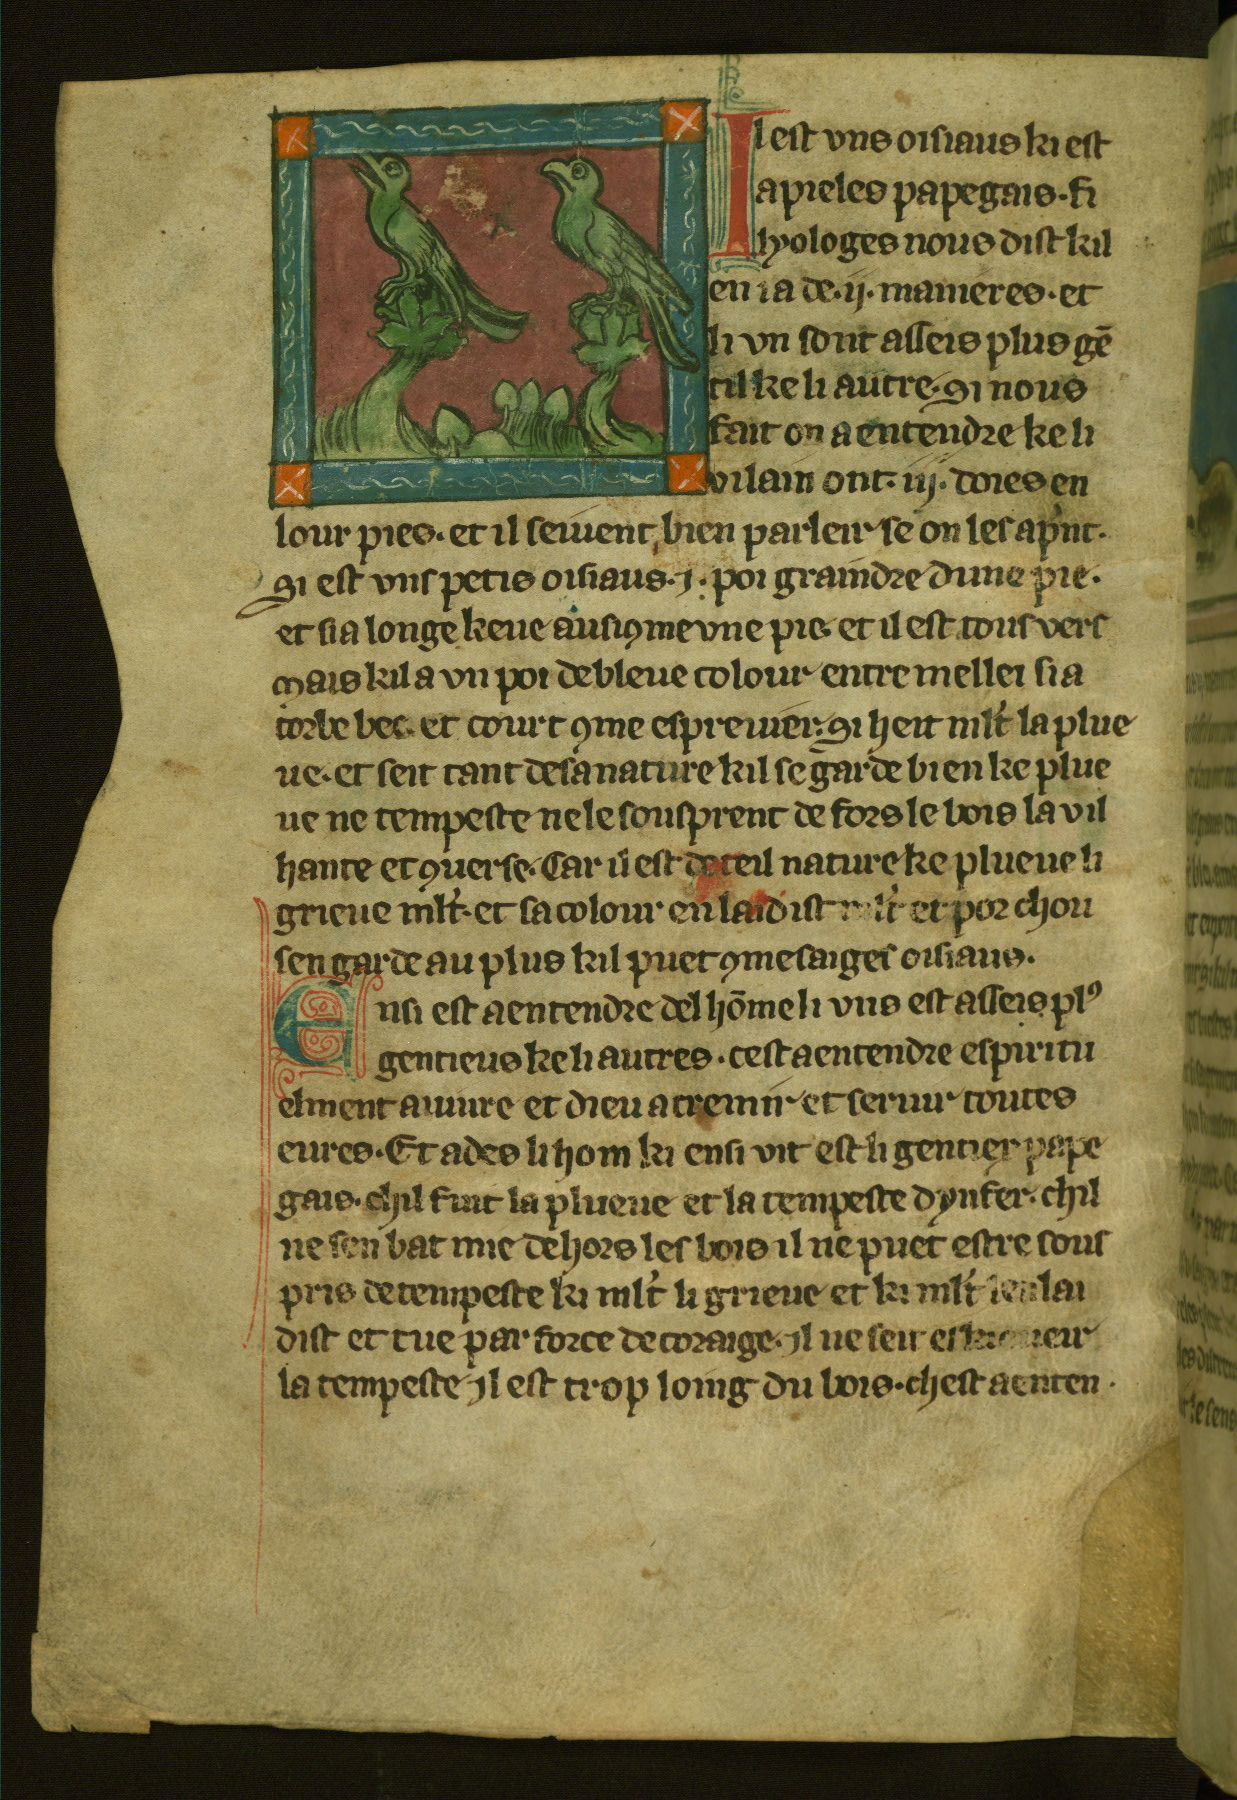 Il est vns oisiaus ki est
apieles papegais. fi
hyologes nous dist kil
en i a de .ij. manieres. et
li vn sont asseis plus gē
til ke li autre. Si nous
fait on a entendre ke li
vilain ont .iij. doies en
lour pies. et il seiuent bien parleir se on les ap̄nt.
Si est vns petis oisiaus .j. poi graindre dune pie.
et si a longe keue ausi ꝯme vne pie. et il est tous vers
Mais kil a vn poi de bleue colour entremellei si a
torbe bec. et court ꝯme espreuier. Si heit ml̄t la plue
ue. et seit tant de sa nature kil se garde bien ke plue
ue ne tempeste ne le sousprent de fors le bois la v il
hante et ꝯuerse. Car il est de teil nature ke plueue li
grieue ml̄t. et sa colour en laidist ml̄t et por chou
sen garde au plus kil puet ꝯme saiges oisiaus.
Ensi est a entendre del hōme li vns est asseis plꝰ
gentieus ke li autres. cest a entendre espiritu
elment a viure et dieu a cremir et seruir toutes
eures. Et ades li hom ki ensi vit est li gentier pape
gais. chil fuit la plueue et la tempeste dynfer. chil
ne sen bat mie dehors les bois il ne puet estre sous
pris de tempeste ki ml̄t li grieue et ki ml̄t lenlai
dist et tue par force de coraige. Il ne seit
la tempeste Il est trop loing du bois. chest a enten